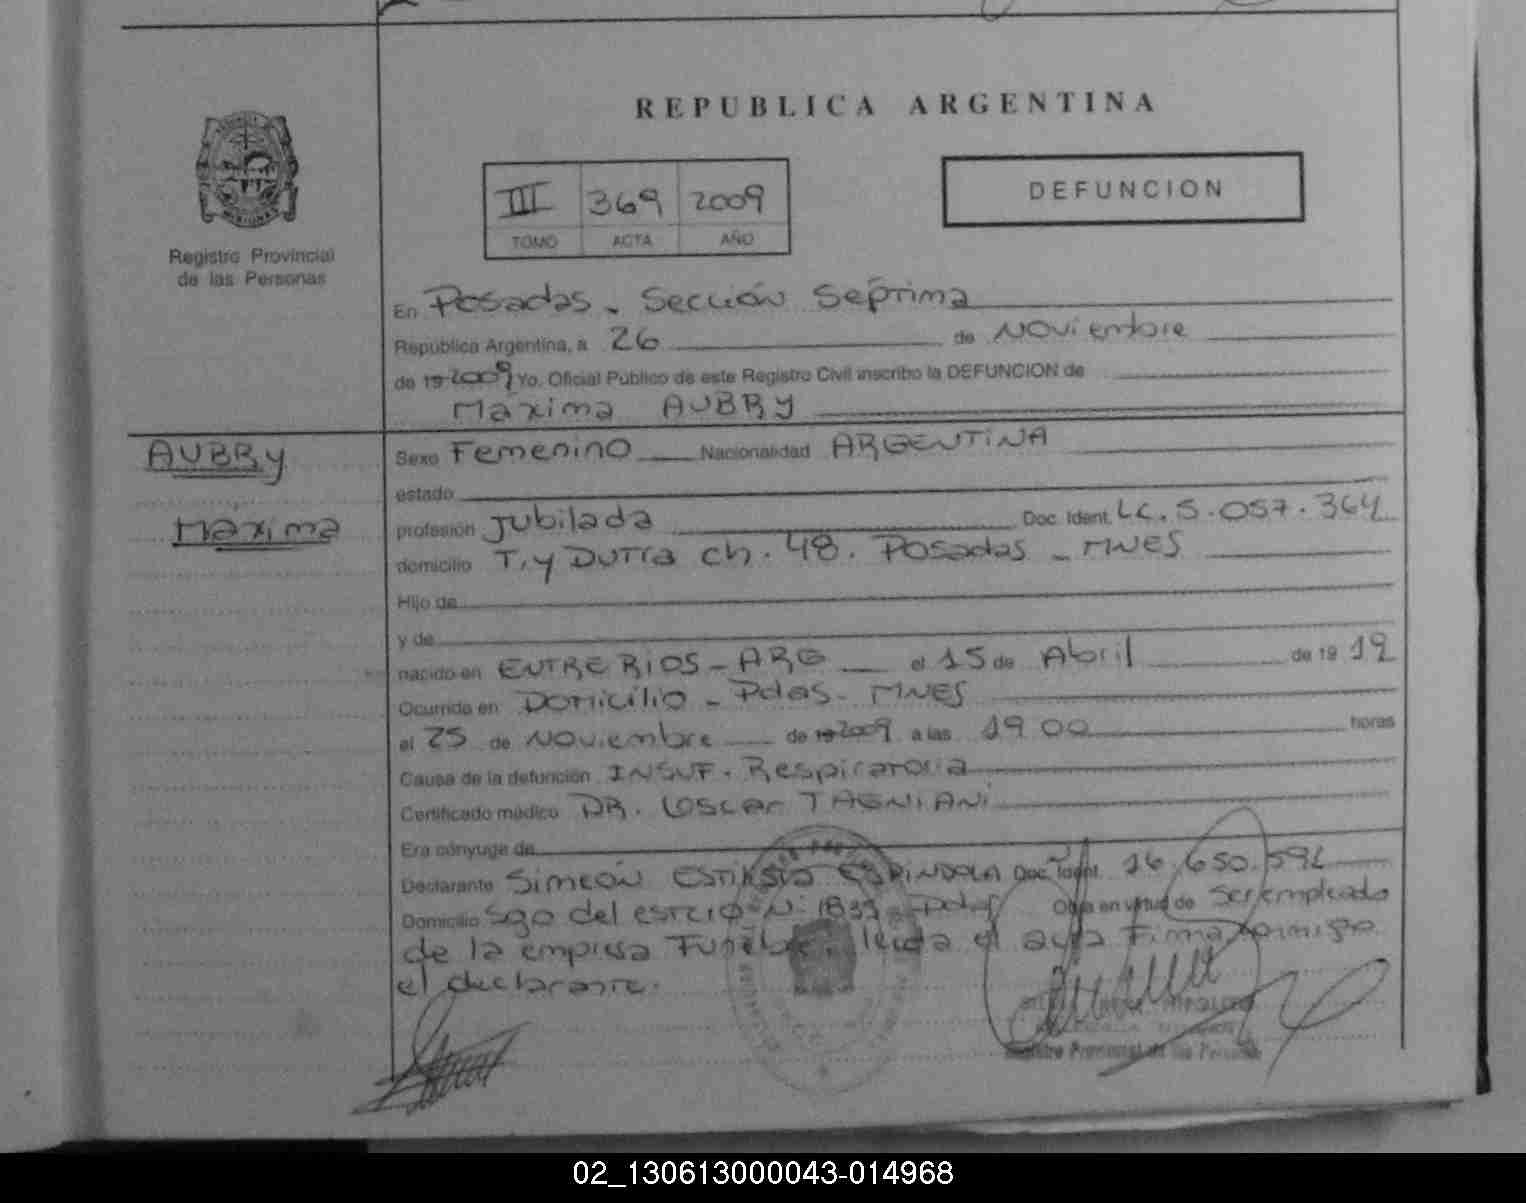 REPUBLICA ARGENTINA
III 369 2009
TOMO ACTA AÑO
DEFUNCION
Registro Provincial
de las Personas
En Posadas - Sección Séptima
República Argentina, a 26 de Noviembre
de 19 2009 Yo, Oficial Público de este Registro Civil inscribo la DEFUNCION de
Máxima AUBRY
AUBRY
Máxima
Sexo Femenino Nacionalidad ARGENTINA
estado
profesión Jubilada Doc. Ident. LC. 5.057.364
domicilio T. y Dutra ch. 48. Posadas - MNES
Hijo de
y de
nacido en ENTRE RIOS - ARG el 15 de Abril de 19 19
Ocurrida en Domicilio - Pdas - MNES
el 25 de Noviembre de 19 2009 a las 19 00 horas
Causa de la defunción INSUF. Respiratoria
Certificado médico DR. Oscar TAGNIANI
Era cónyuge de
Declarante Simeón ESPINDOLA Doc. Ident. 16.650.592
Domicilio Sgo del estero N: 1839 - Pdas Obra en virtud de Ser empleado
de la empresa Funebre, leida el acta Firma conmigo
el declarante.
Registro Provincial de las Personas
02_130613000043-014968